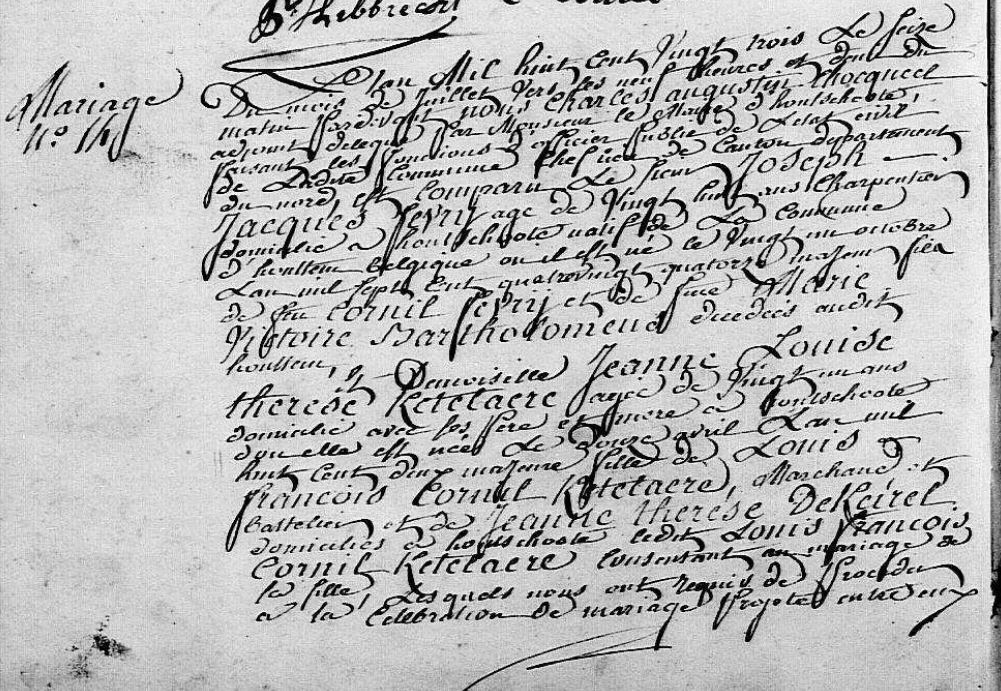 Mariage
n.o 14
L'an Mil huit Cent Vingt trois Le Seize
Du mois de Juillet Vers les neuf heures et demi du
matin pardevant nous Charles augustin
adjoint delegué par Monsieur le Maire d'hontschoote,
faisant les fonctions d'officier public de L'etat civil
de Ladite Commune Chef lieu de Canton departement
du nord, est comparu Le sieur Joseph
Jacques fevry agé de Vingt huit ans Charpentier
domicilié a hontschoote natif de La Commune
d'houttem belgique ou il est né le Vingt un octobre
L'an mil sept Cent quatrevingt quatorze majeur fils
de feu Cornil fevrij et de feue Marie
Victoire Bartholomeus décédés audit
houttem, et Demoiselle Jeanne Louise
therese Ketelaere agée de Vingt un ans
domicilié avec ses père et mere a hontschoote
d'ou elle est née Le Douze avril L'an mil
huit Cent deux majeure fille de Louis
francois Cornil Ketelaere, Marchand et
Bastelier et de Jeanne therese DeKeirel
domiciliés a hontschoote ledit Louis francois
Cornil Ketelaere Consentant au mariage de
sa fille, Lesquels nous ont requis de proceder
a la Celebration de mariage projeté entre eux